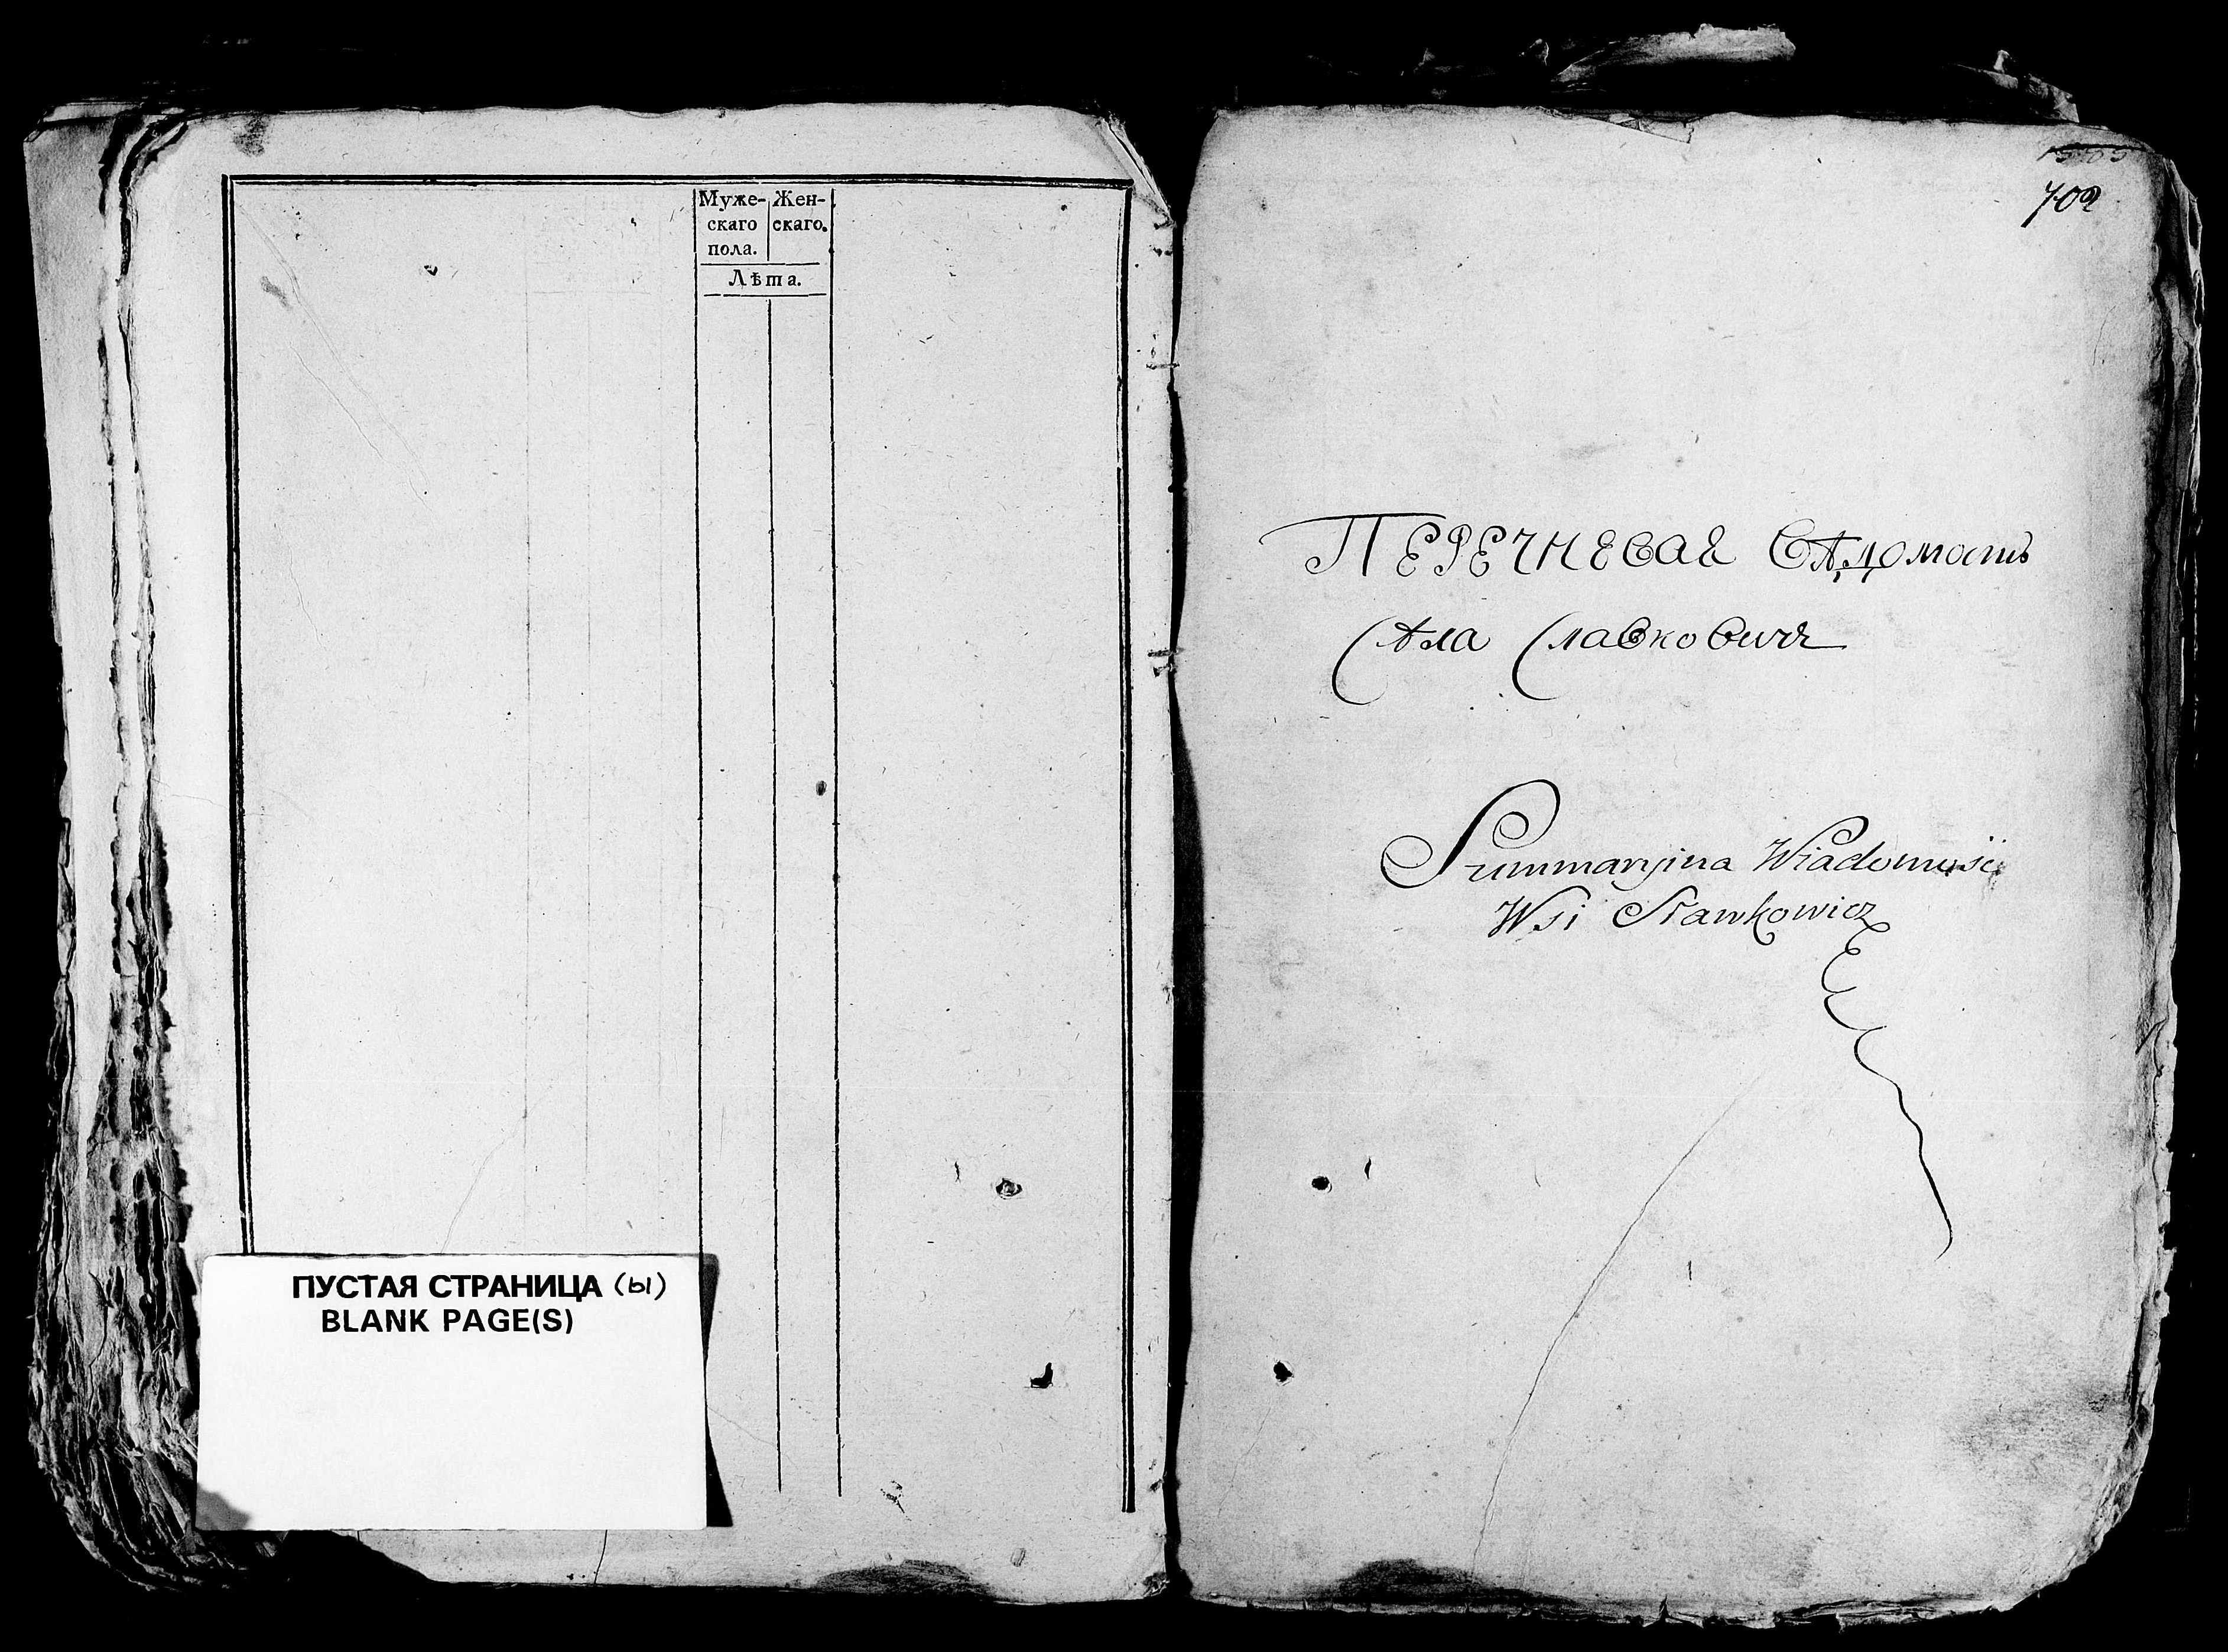 Муже- Жен-
скаго скаго.
пола.
Лѣта.
ПУСТАЯ СТРАНИЦА (ы)
BLANK PAGE(S)
702
Перечневая вѣдомость
Сѣла Славковичъ
Summaryina Wiadomość
Wsi Sławkowicz